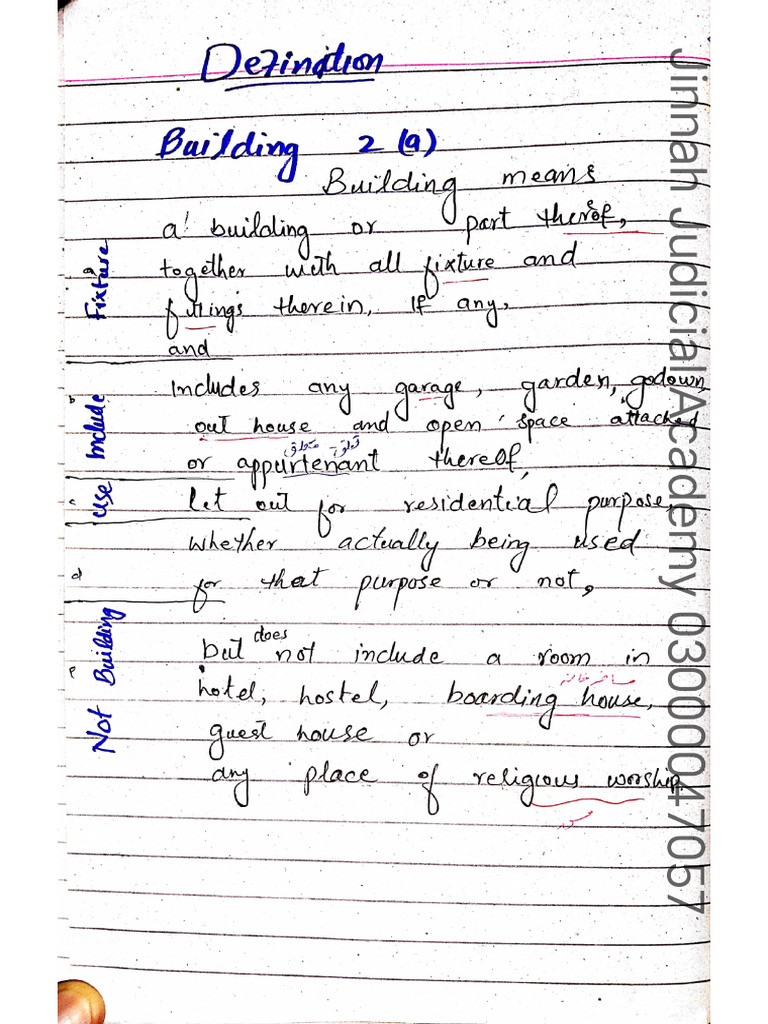 Defination
Building 2 (a)
Building means
a building or part therof,
together with all fixture and
fittings therein, if any,
and
Includes any garage, garden, godown,
out house and open space attached
or appurtenant thereof,
let out for residential purpose,
whether actually being used
for that purpose or not,
but does not include a room in
hotel, hostel, boarding house,
guest house or
any place of religious worship.
a
Fixture
b
Include
c
Use
d
Not Building
مسافر خانہ
Jinnah Judicial Academy 03000047057